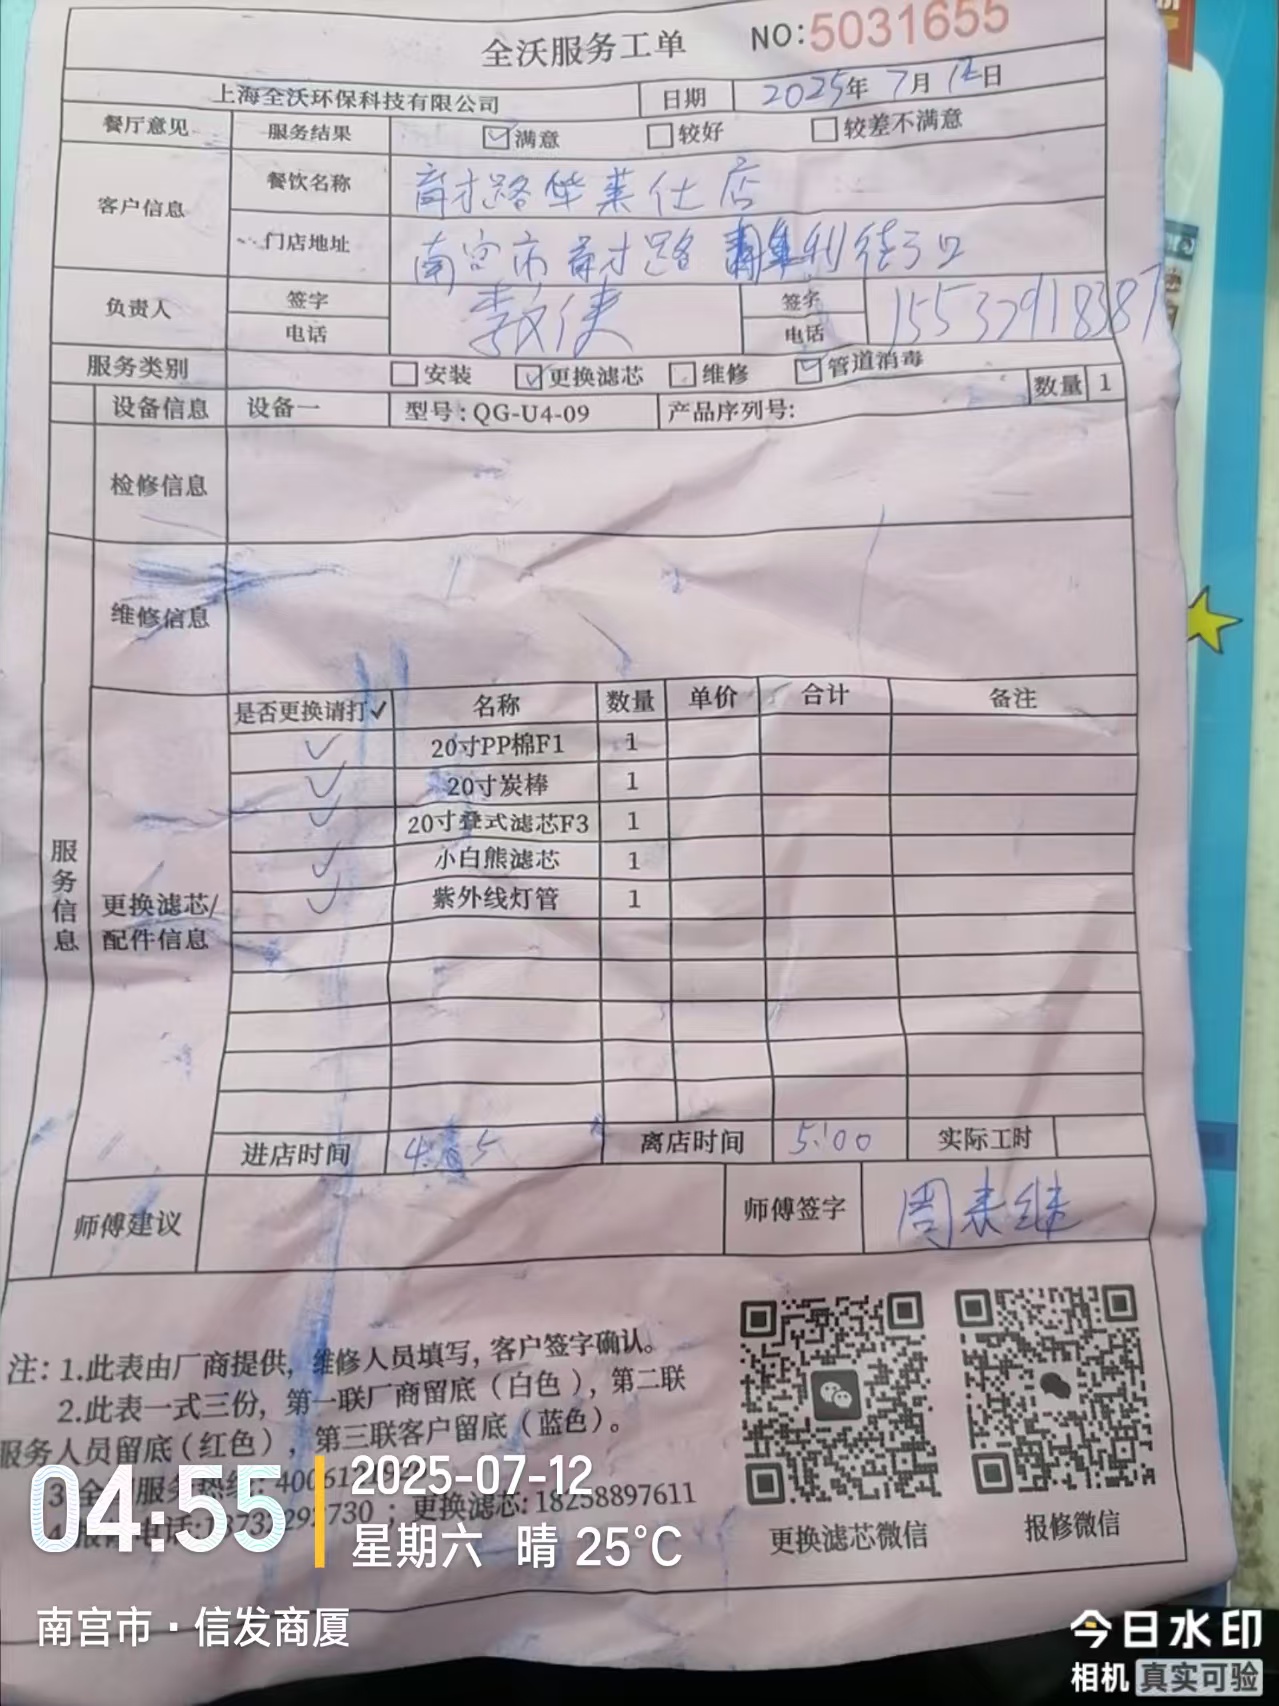 全沃服务工单 NO:5031655
上海全沃环保科技有限公司 日期 2025年7月12日
餐厅意见 服务结果 满意 较好 较差不满意
客户信息 餐饮名称 育才路华莱仕店
门店地址 南宫市育才路 利街3口
负责人 签字 签字
电话 电话 15537918387
服务类别 安装 更换滤芯 维修 管道消毒
设备信息 设备一 型号:QG-U4-09 产品序列号: 数量 1
检修信息
维修信息
是否更换请打✓ 名称 数量 单价 合计 备注
✓ 20寸PP棉F1 1
✓ 20寸炭棒 1
✓ 20寸叠式滤芯F3 1
✓ 小白熊滤芯 1
✓ 紫外线灯管 1
服务信息
更换滤芯/
配件信息
进店时间 离店时间 5:00 实际工时
师傅建议 师傅签字 周来继
注: 1.此表由厂商提供, 维修人员填写, 客户签字确认。
2.此表一式三份, 第一联厂商留底(白色), 第二联
服务人员留底(红色), 第三联客户留底(蓝色)。
更换滤芯:18258897611
更换滤芯微信 报修微信
04:55
2025-07-12
星期六 晴 25°C
南宫市·信发商厦
今日水印
相机 真实可验